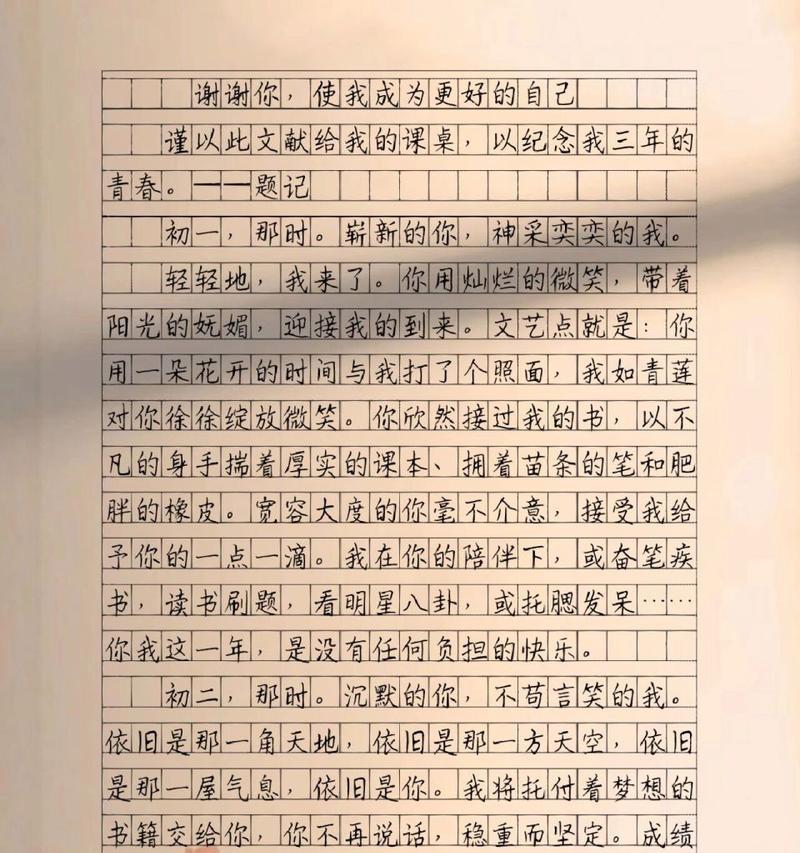 谢谢你，使我成为更好的自己
谨以此文献给我的课桌，以纪念我三年的
青春。——题记
初一，那时。崭新的你，神采奕奕的我。
轻轻地，我来了。你用灿烂的微笑，带着
阳光的妩媚，迎接我的到来。文艺点就是：你
用一朵花开的时间与我打了个照面，我如青莲
对你徐徐绽放微笑。你欣然接过我的书，以不
凡的身手揣着厚实的课本、拥着苗条的笔和肥
胖的橡皮。宽容大度的你毫不介意，接受我给
予你的一点一滴。我在你的陪伴下，或奋笔疾
书，读书刷题，看明星八卦，或托腮发呆……
你我这一年，是没有任何负担的快乐。
初二，那时。沉默的你，不苟言笑的我。
依旧是那一角天地，依旧是那一方天空，依旧
是那一屋气息，依旧是你。我将托付着梦想的
书籍交给你，你不再说话，稳重而坚定。成绩